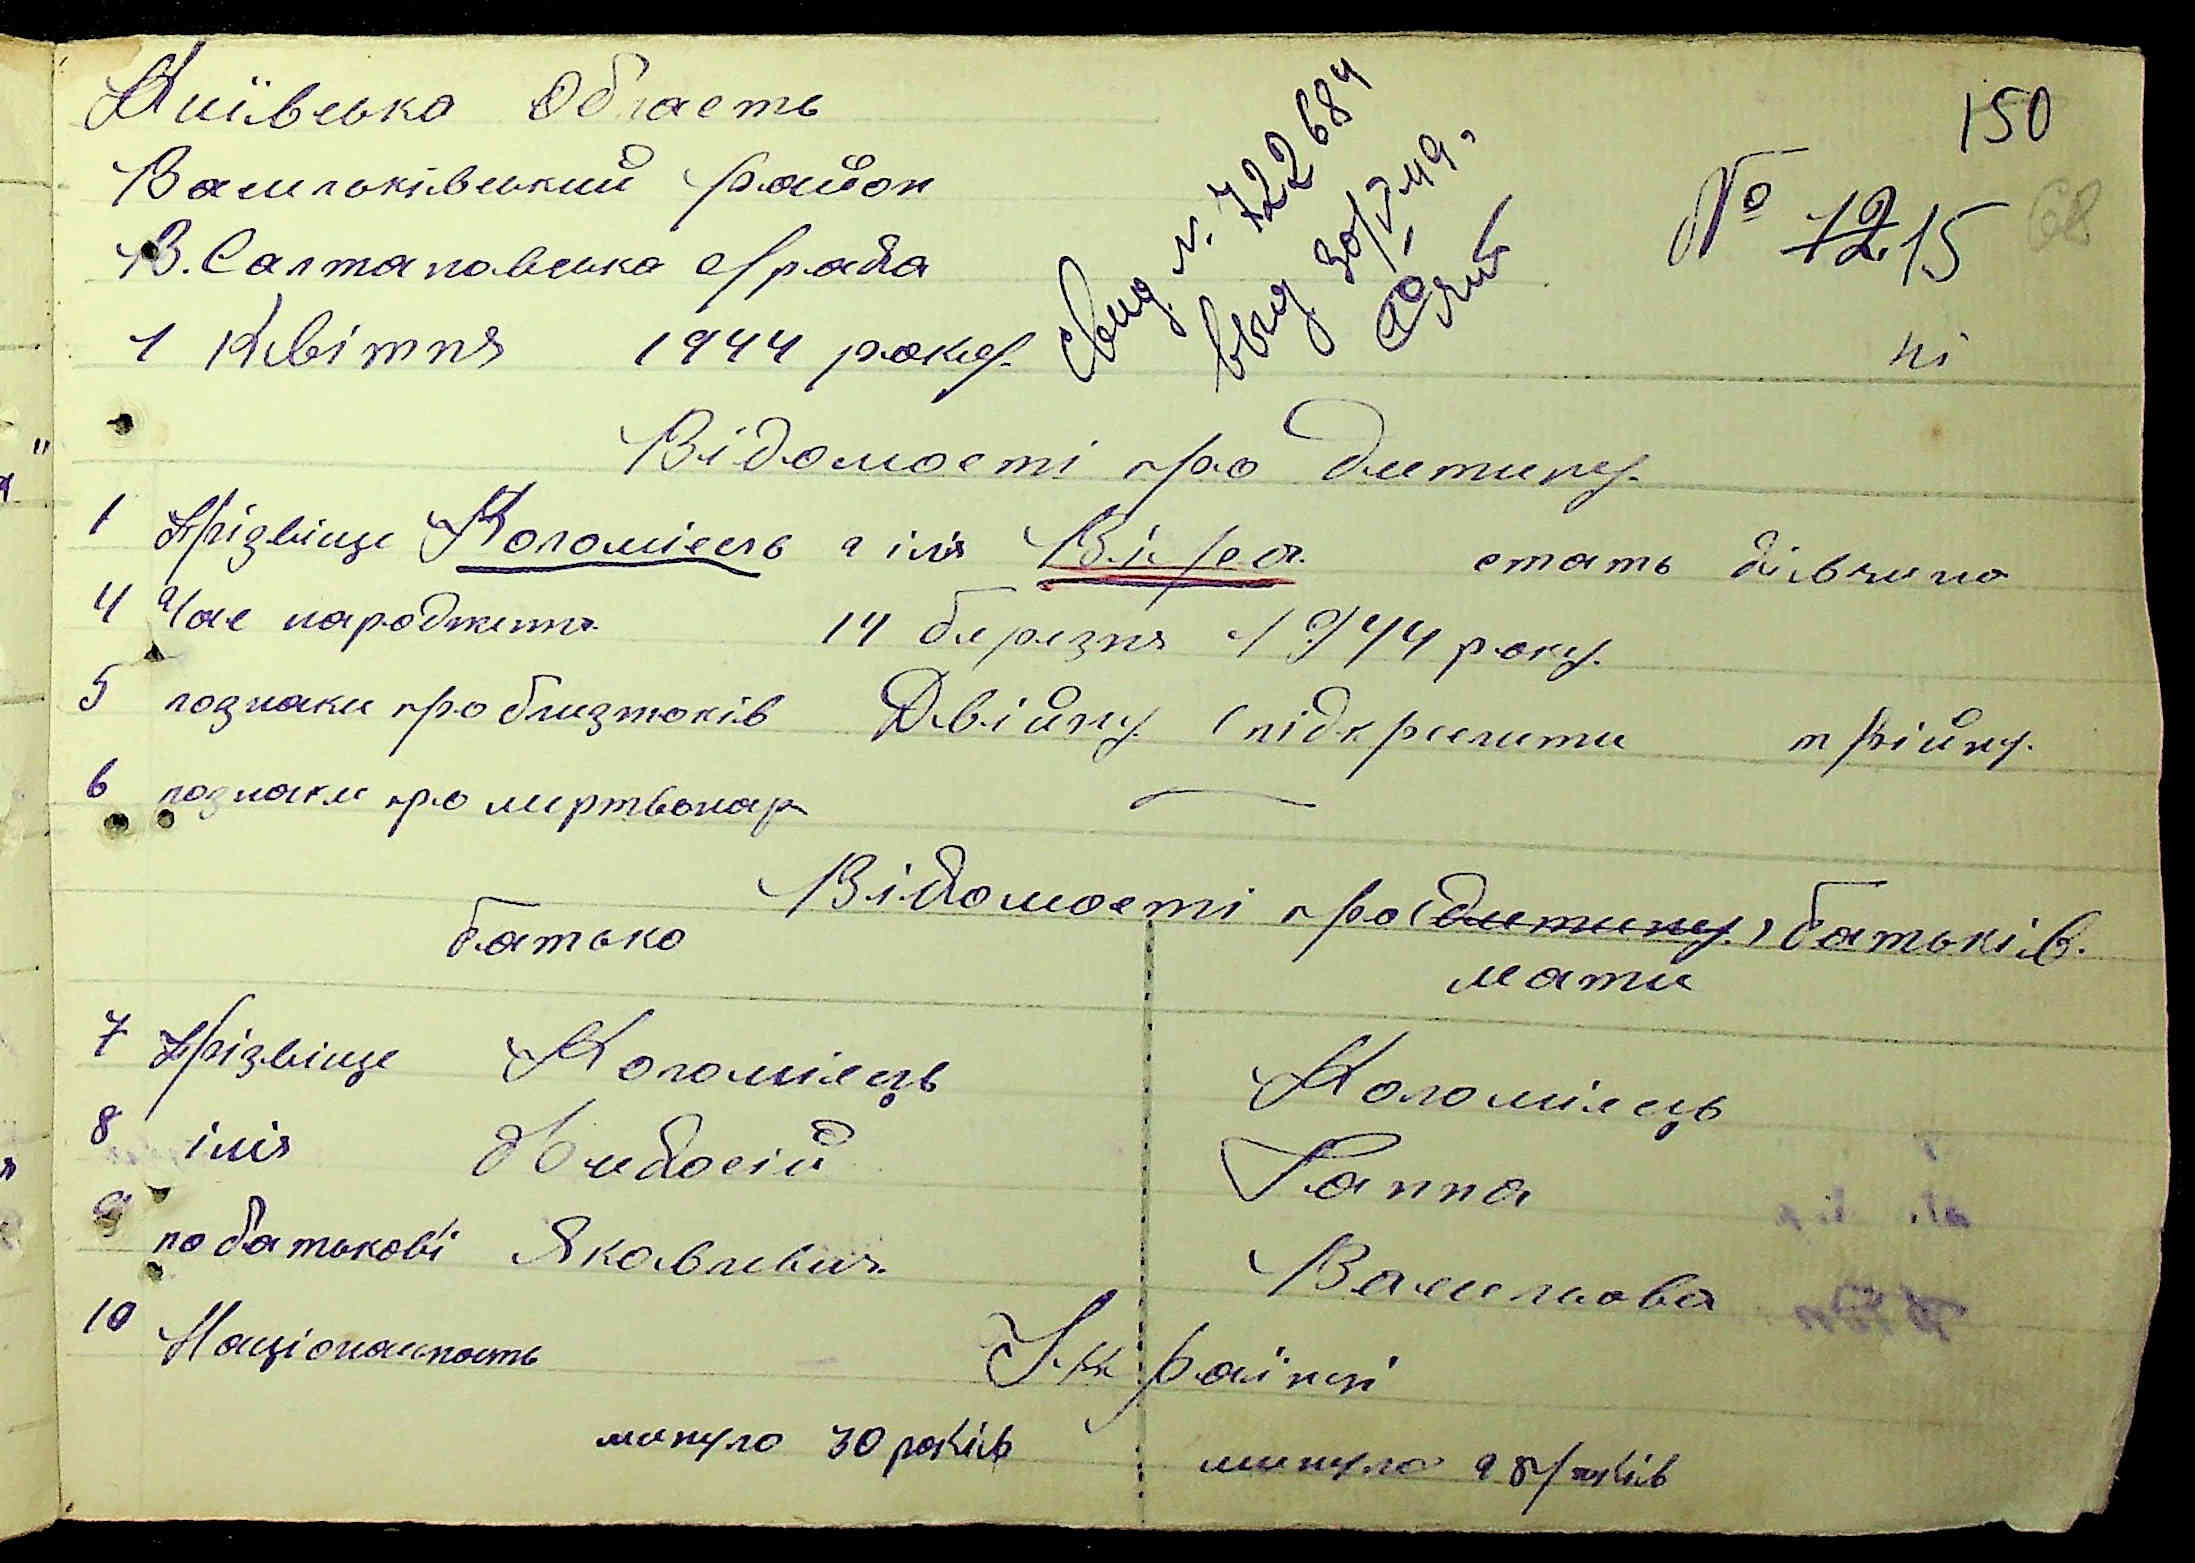 150
Київська Область
Васильківський район
В. Салтановська с/рада
№ 12 15
68
1 Квітня 1944 року.
свид. №. 722684
выд 30/V 49.
ні
Відомості про дитину.
1 Прізвіще Коломієць 2 імя Віра стать дівчина
4 Час народження 14 березня 1944 року.
5 познаки про близтюків Двійну (підкреслити трійну.
6 познаки про мертвонар —
Відомості про (дитину) батьків.
батько мати
7 Прізвіще Коломієць Коломієць
8 імія Хведосій Ганна
9 по батькові Яковлевич Васильова
10 Національность Українці
минуло 30 років минуло 28 років